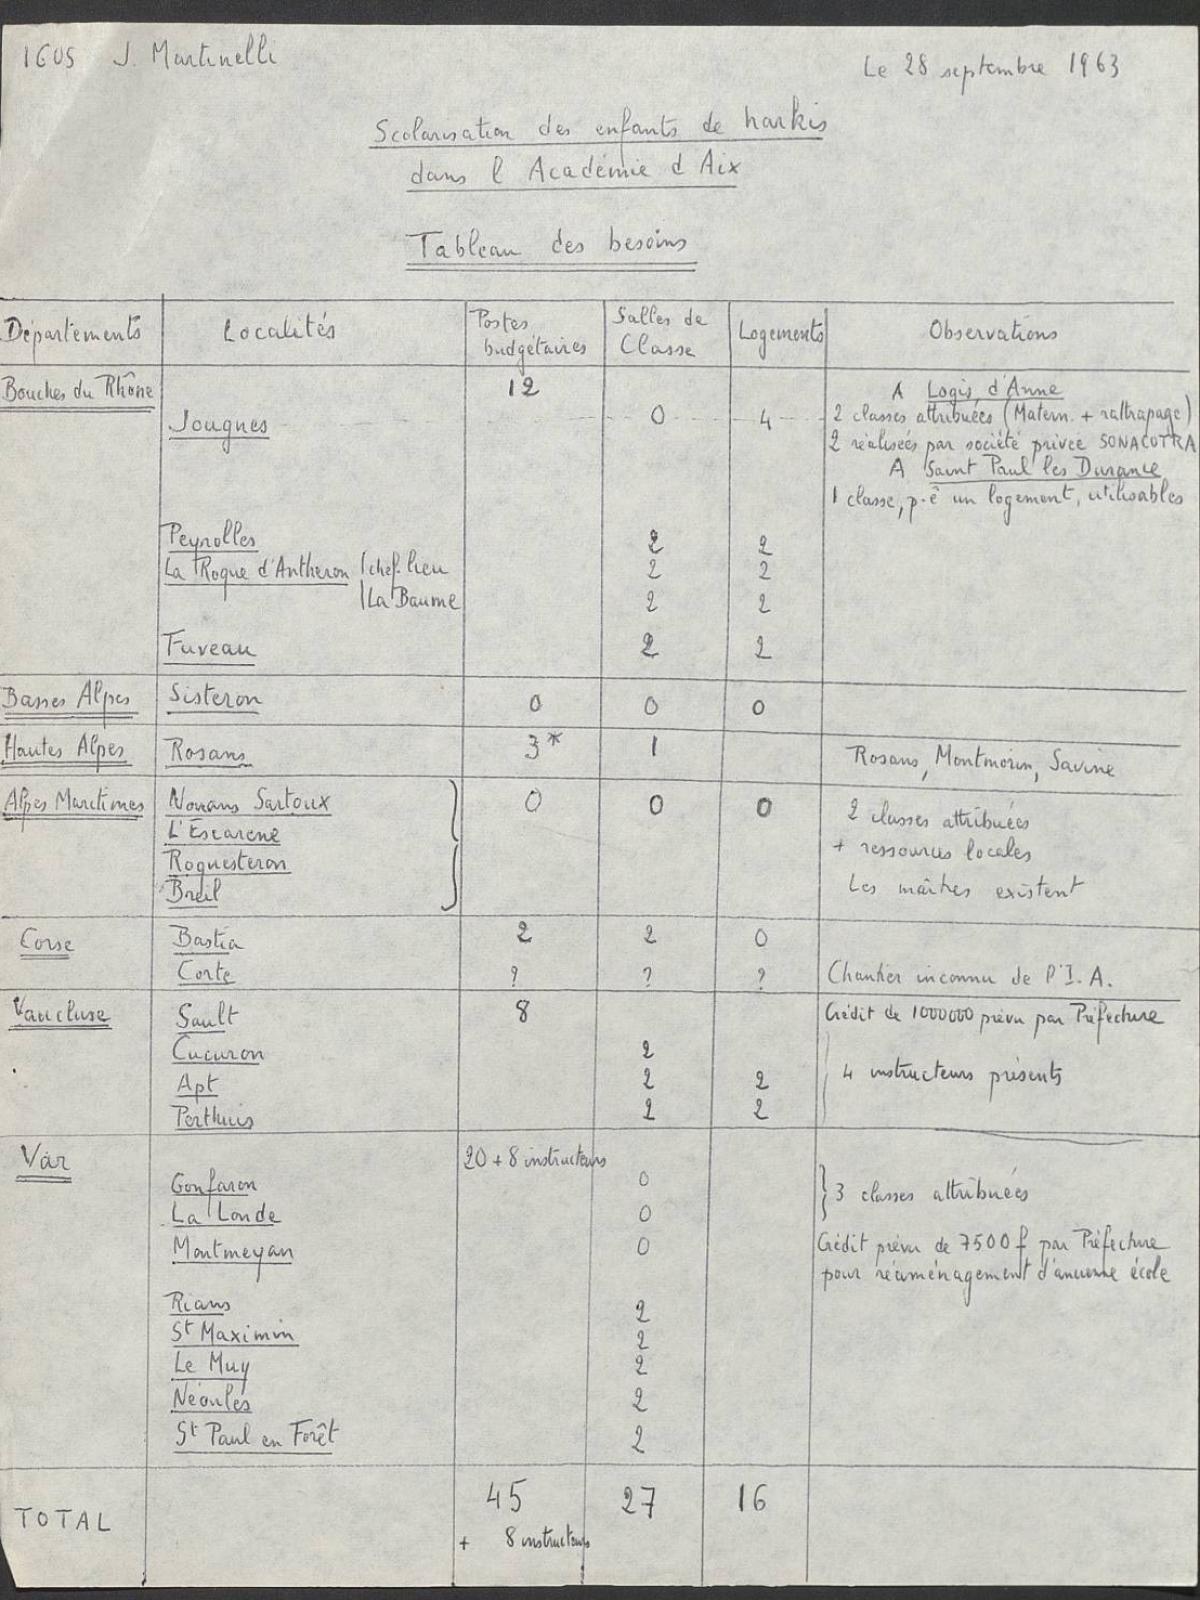 IGUS J. Martinelli
Le 28 septembre 1963
Scolarisation des enfants de harkis
dans l Académie d Aix
Tableau des besoins
Départements Localités Postes budgétaires Salles de Classe Logements Observations
Bouches du Rhône 12 A Logis d'Anne
Jougnes 0 4 2 classes attribuées (Matern. + rattrapage)
2 réalisées par société privée SONACOTRA
A Saint Paul les Durance
1 classe, p.ê un logement, utilisables
Peyrolles 2 2
La Roque d'Antheron chef. lieu 2 2
La Baume 2 2
Fuveau 2 2
Basses Alpes Sisteron 0 0 0
Hautes Alpes Rosans 3* 1 Rosans, Montmorin, Savine
Alpes Maritimes Nouans Sartoux 0 0 0 2 classes attribuées
L'Escarene + ressources locales
Roquesteron
Breil Les maîtres existent
Corse Bastia 2 2 0
Corte ? ? ? Chantier inconnu de l'I.A.
Vaucluse Sault 8 Crédit de 1000000 prévu par Préfecture
Cucuron 2
Apt 2 2 4 instructeurs présents
Perthuis 2 2
Var 20 + 8 instructeurs
Gonfaron 0 3 classes attribuées
La Londe 0
Montmeyan 0 Crédit prévu de 7500 f par Préfecture
pour réaménagement d'ancienne école
Rians 2
St Maximin 2
Le Muy 2
Néoules 2
St Paul en Forêt 2
TOTAL 45 27 16
+ 8 instructeurs